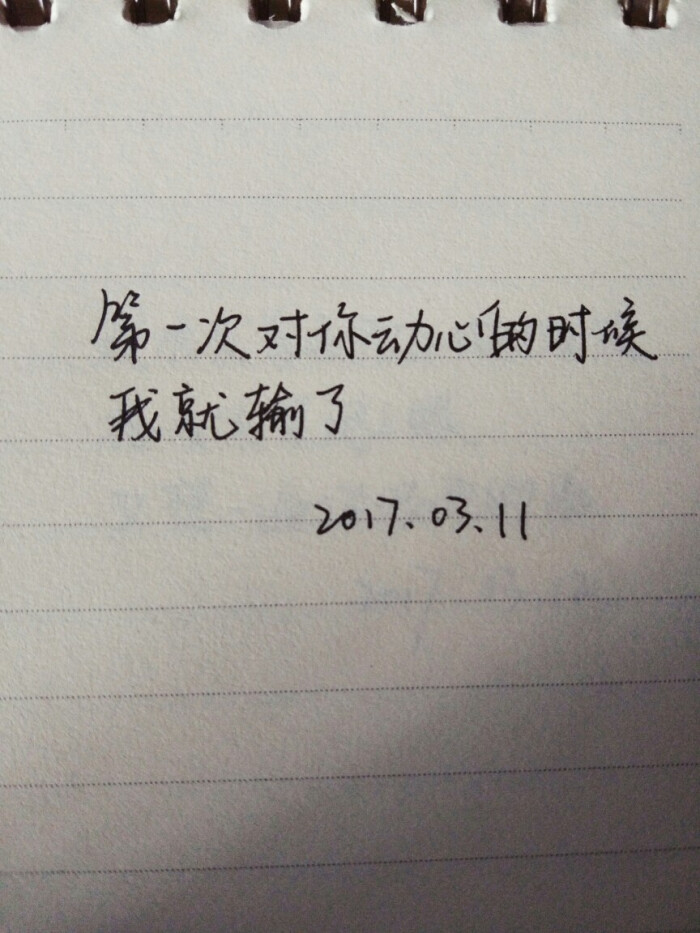 第一次对你动心的时候
我就输了
2017.03.11